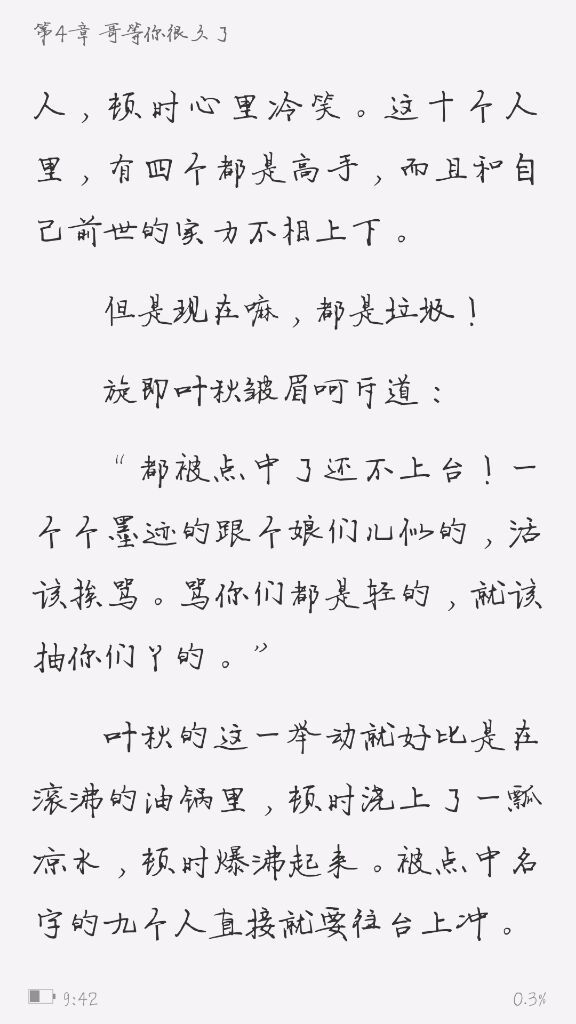 第4章 哥等你很久了
人，顿时心里冷笑。这十个人
里，有四个都是高手，而且和自
己前世的实力不相上下。
但是现在嘛，都是垃圾！
旋即叶秋皱眉呵斥道：
“都被点中了还不上台！一
个个墨迹的跟个娘们儿似的，活
该挨骂。骂你们都是轻的，就该
抽你们丫的。”
叶秋的这一举动就好比是在
滚沸的油锅里，顿时浇上了一瓢
凉水，顿时爆沸起来。被点中名
字的九个人直接就要往台上冲。
9:42
0.3%